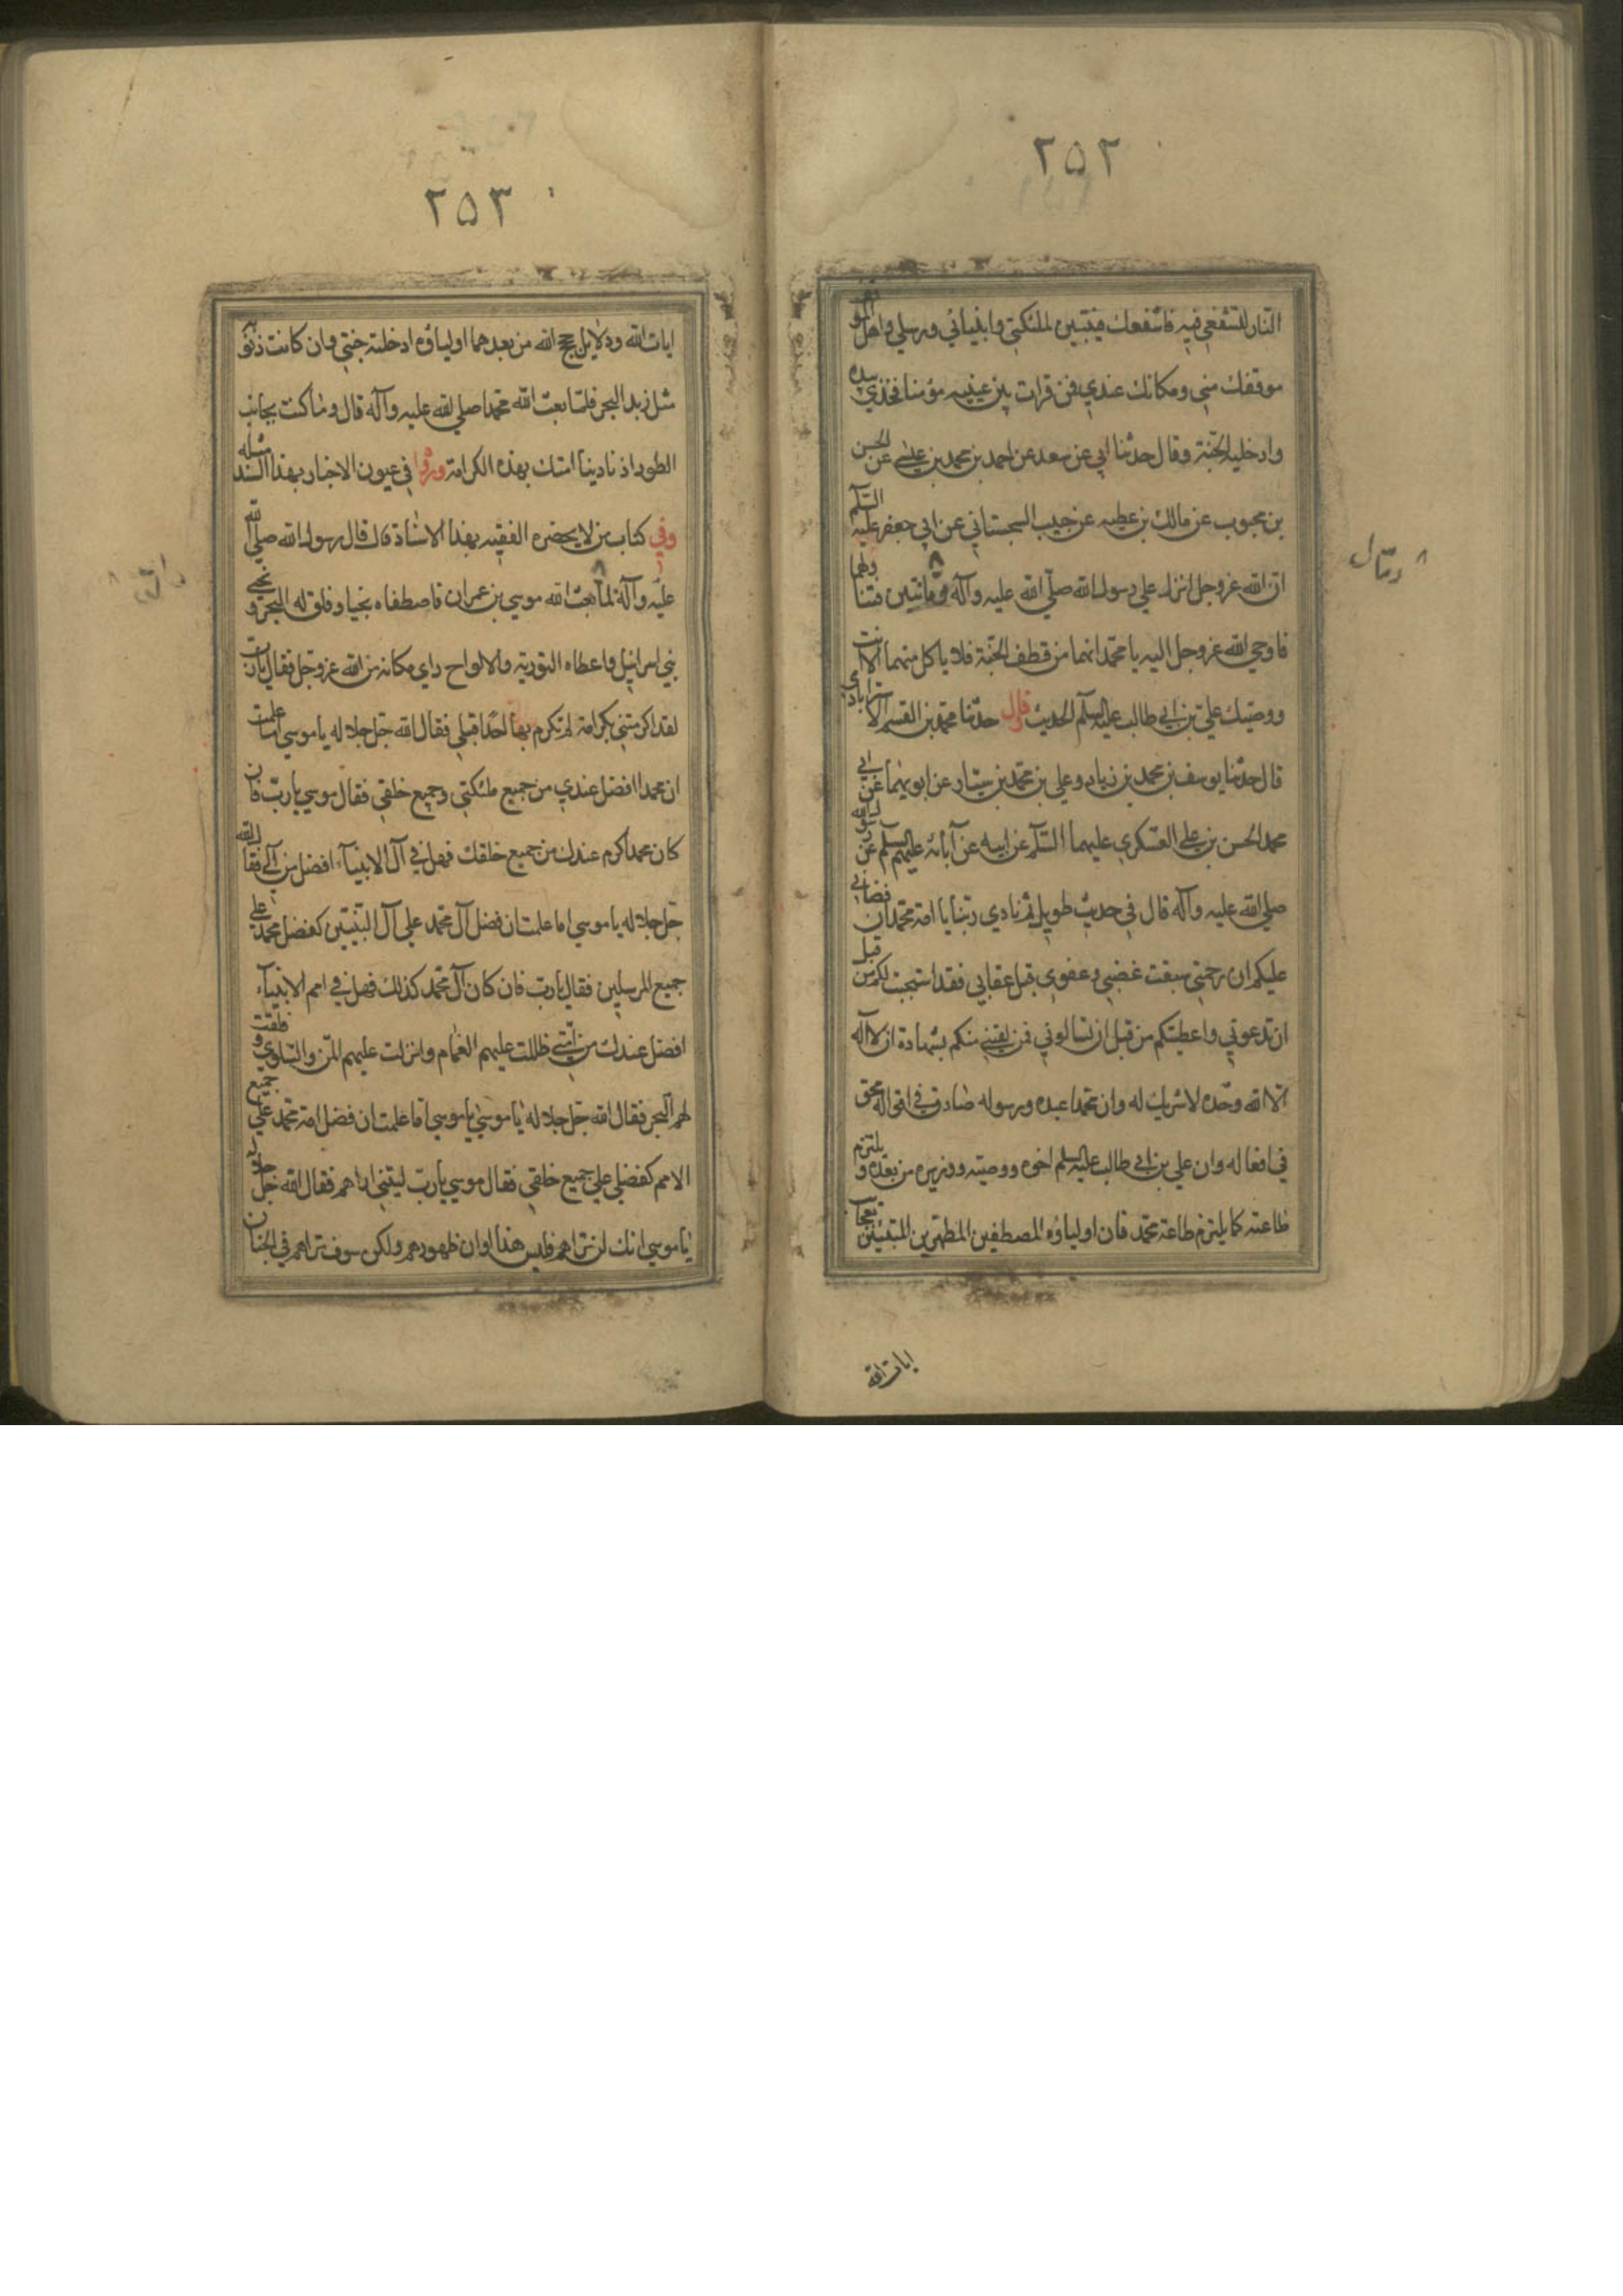 ٢٥٢
النار لتشفعي فيه فاشفعك فيتبين لملئكتي وانبيائي ورسلي واهل الموقف
موقفك مني ومكانك عندي فمن قرات بين عينيه مؤمنا فخذي بيده
وادخليه الجنة وقال حدثنا ابي عن سعد عن احمد بن محمد بن عيسى عن الحسن
بن محبوب عن مالك بن عطيه عن حبيب السجستاني عن ابي جعفر عليه السلم
ان الله عز وجل انزل علي رسول الله صلى الله عليه وآله رمانتين
فاوحي الله عز وجل اليه يا محمد انهما من قطف الجنة فلا ياكل منهما الا انت
ووصيك علي بن ابي طالب عليه السلم الحديث وقال حدثنا محمد بن القسم الاسترابادي
قال حدثنا يوسف بن محمد بن زياد وعلي بن محمد بن سيار عن ابويهما عن ابي
محمد الحسن بن علي العسكري عليهما السلم عن ابيه عن آبائه عليهم السلم عن رسول الله
صلي الله عليه وآله قال في حديث طويل ثم نادي ربنا يا امة محمد ان قضائي
عليكم ان رحمتي سبقت غضبي وعفوي قبل عقابي فقد استجبت لكم من قبل
ان تدعوني واعطيتكم من قبل ان تسالوني فمن لقيني منكم بشهادة ان لا اله
الا الله وحده لا شريك له وان محمدا عبده ورسوله صادق في اقواله محق
في افعاله وان علي بن ابي طالب عليه السلم اخوه ووصيه ووزيره من بعده ويلتزم
طاعته كما يلتزم طاعة محمد فان اولياؤه المصطفين المطهرين
ايات الله
٢٥٣
ايات الله ودلايل حجج الله من بعدهما اولياؤه ادخلته جنتي وان كانت ذنوبه
مثل زبد البحر فلما بعث الله محمدا صلي الله عليه وآله قال وما كنت بجانب
الطور اذ نادينا امتك بهذه الكرامة ورواه في عيون الاخبار بهذا السند مثله
وفي كتاب من لا يحضره الفقيه بهذا الاسناد قال قال رسول الله صلي الله
عليه وآله لما بعث الله موسي بن عمران فاصطفاه نجيا وفلق له البحر ونجى
بني اسرائيل واعطاه التورية والالواح راي مكانه من الله عز وجل فقال يا رب
لقد اكرمتني بكرامة لم تكرم بها احدا قبلي فقال الله جل جلاله يا موسي اما علمت
ان محمدا افضل عندي من جميع ملئكتي وجميع خلقي فقال موسي يا رب فان
كان محمدا اكرم عندك من جميع خلقك فهل في آل الانبيآء افضل من آلي فقال الله
جل جلاله يا موسي اما علمت ان فضل آل محمد علي آل النبيين كفضل محمد علي
جميع المرسلين فقال يا رب فان كان آل محمد كذلك فهل في امم الانبيآء
افضل عندك من امتي ظللت عليهم الغمام وانزلت عليهم المن والسلوي وفلقت
لهم البحر فقال الله جل جلاله يا موسي يا موسي اما علمت ان فضل امة محمد علي جميع
الامم كفضلي علي جميع خلقي فقال موسي يا رب ليتني اراهم فقال الله جل جلاله
يا موسي انك لن تراهم فليس هذا اوان ظهورهم ولكن سوف تراهم في الجنان